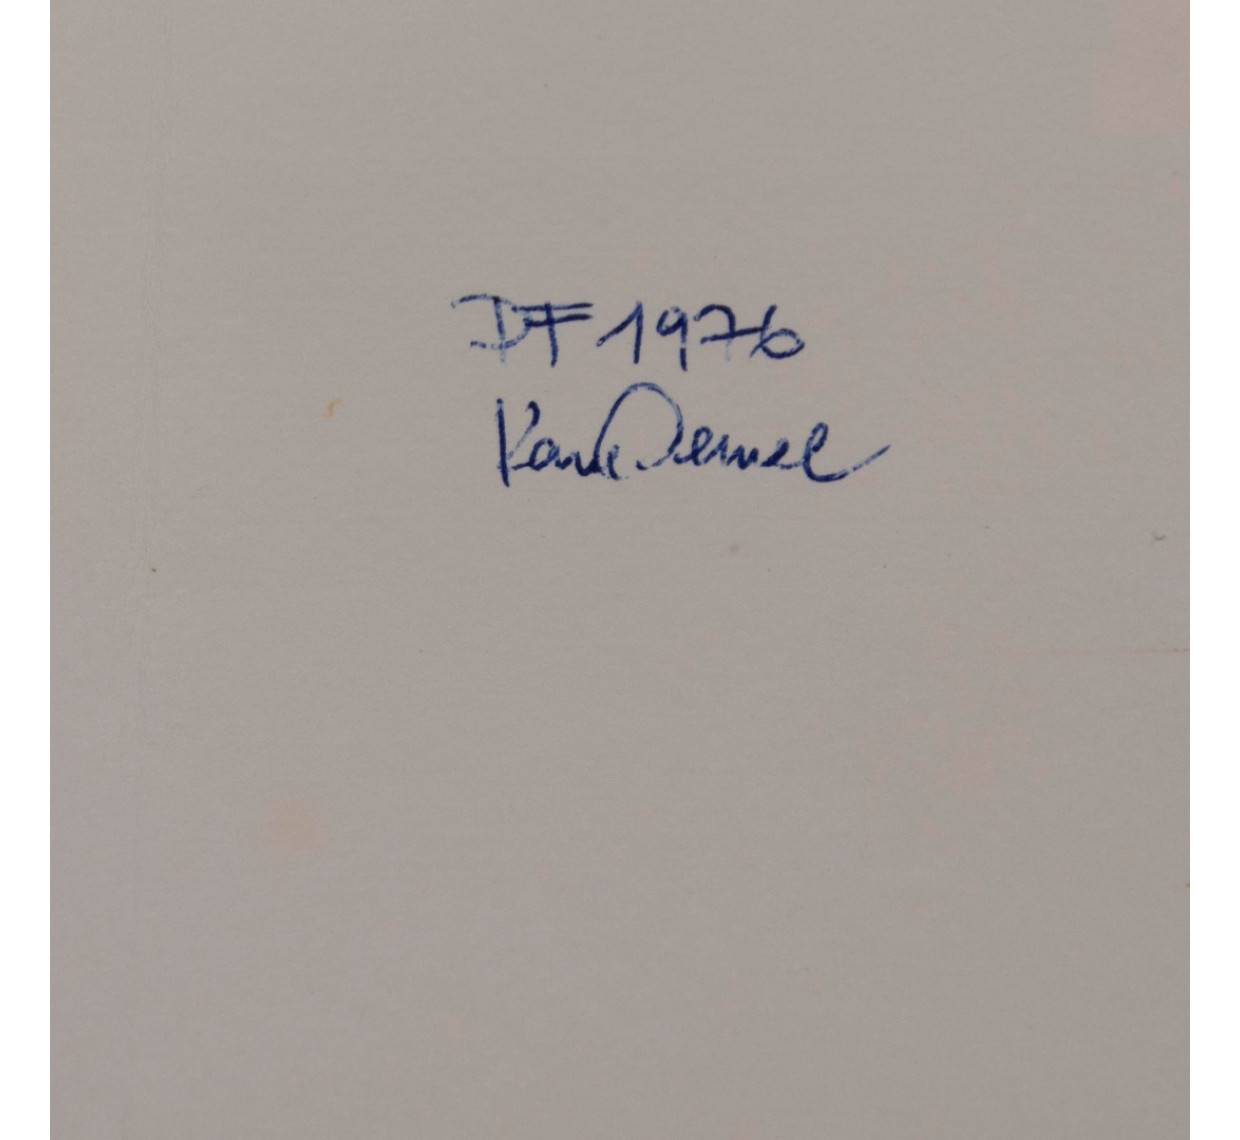 DF 1976
Karl Demel